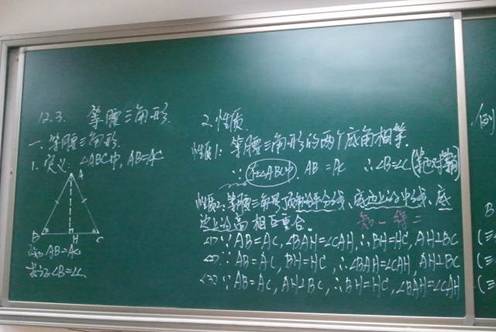 12.3. 等腰三角形
一、等腰三角形
1. 定义: △ABC中, AB=AC
A
B H C
AB=AC
∠B=∠C
2. 性质
性质1: 等腰三角形的两个底角相等
∵ 在△ABC中 AB=AC ∴∠B=∠C (等边对等角)
性质2: 等腰三角形顶角的平分线、底边上的中线、底
边上的高 相互重合。
(1) ∵ AB=AC, ∠BAH=∠CAH, ∴BH=HC, AH⊥BC
(2) ∵ AB=AC, BH=HC, ∴∠BAH=∠CAH, AH⊥BC
(3) ∵ AB=AC, AH⊥BC, ∴BH=HC, ∠BAH=∠CAH
例
B
(三
(三
(三